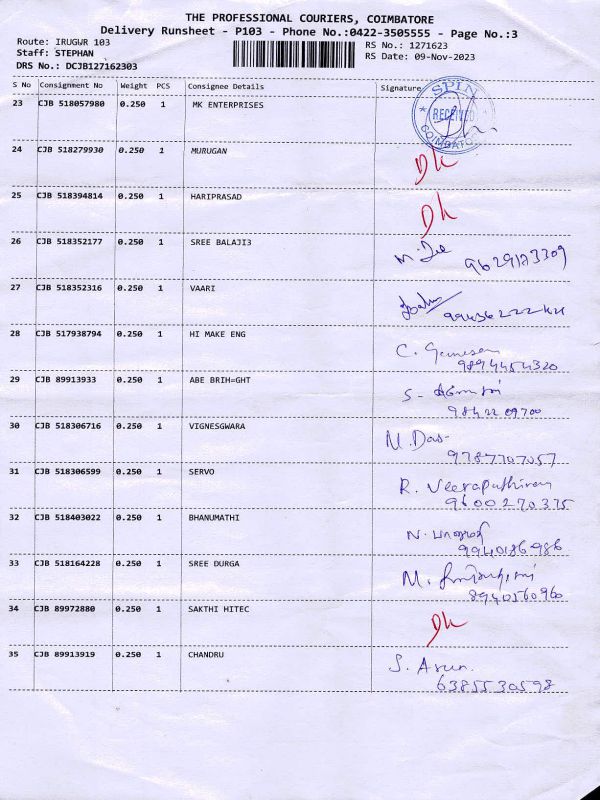 THE PROFESSIONAL COURIERS, COIMBATORE
Delivery Runsheet - P103 - Phone No.:0422-3505555 - Page No.:3
Route: IRUGWR 103 RS No.: 1271623
Staff: STEPHAN RS Date: 09-Nov-2023
DRS No.: DCJB127162303
S No Consignment No Weight PCS Consignee Details Signature
23 CJB 518057980 0.250 1 MK ENTERPRISES
SPIN
RECEIVED
24 CJB 518279930 0.250 1 MURUGAN
25 CJB 518394814 0.250 1 HARIPRASAD
26 CJB 518352177 0.250 1 SREE BALAJI3
27 CJB 518352316 0.250 1 VAARI
28 CJB 517938794 0.250 1 HI MAKE ENG C. Ganesan
9894454320
29 CJB 89913933 0.250 1 ABE BRIH=GHT
9842209700
30 CJB 518306716 0.250 1 VIGNESGWARA M. Das
9787707057
31 CJB 518306599 0.250 1 SERVO R. Veeraputhiran
9600270375
32 CJB 518403022 0.250 1 BHANUMATHI N. பானுமதி
9940186986
33 CJB 518164228 0.250 1 SREE DURGA
8940560960
34 CJB 89972880 0.250 1 SAKTHI HITEC
35 CJB 89913919 0.250 1 CHANDRU S. Arun.
6385530598